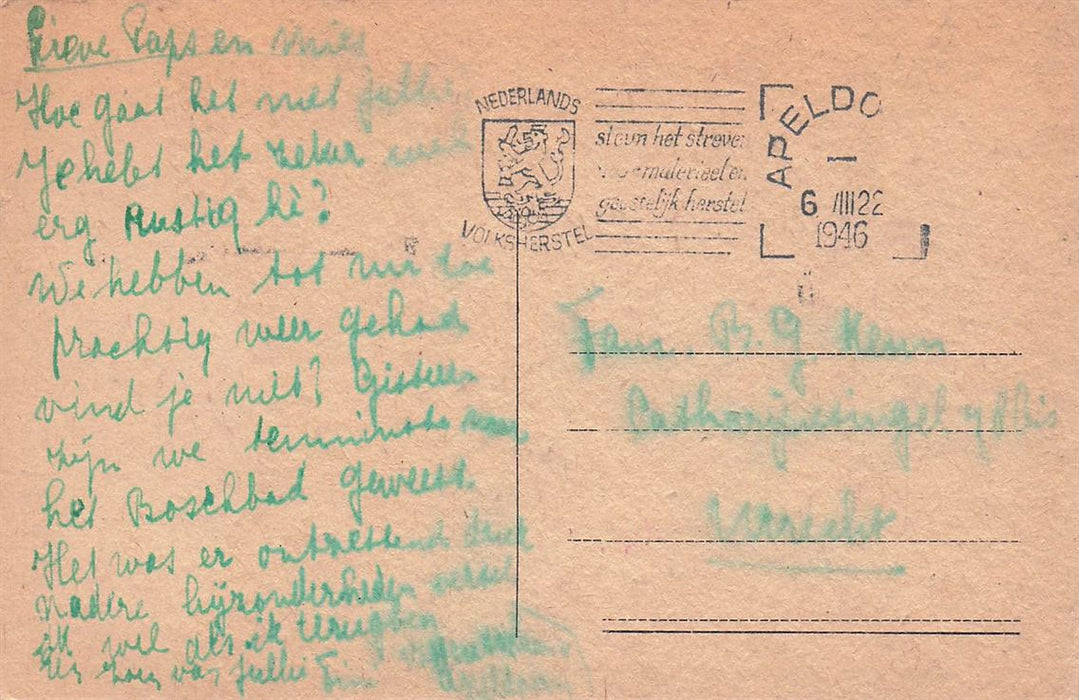 Lieve Paps en
Hoe gaat het met jullie
Je hebt het zeker
erg Rustig hè?
We hebben tot nu toe
prachtig weer gehad
vind je niet? Gisteren
zijn we tenminste naar
het Boschbad geweest.
Het was er ontzettend druk
Nadere bijzonderheden vertel
ik wel als ik terugben
jullie
NEDERLANDS
VOLKSHERSTEL
steun het streven
materieel en
geestelijk herstel
APELDO
6 IIII22
1946
Fam. B. G
Catharijnesingel
Utrecht